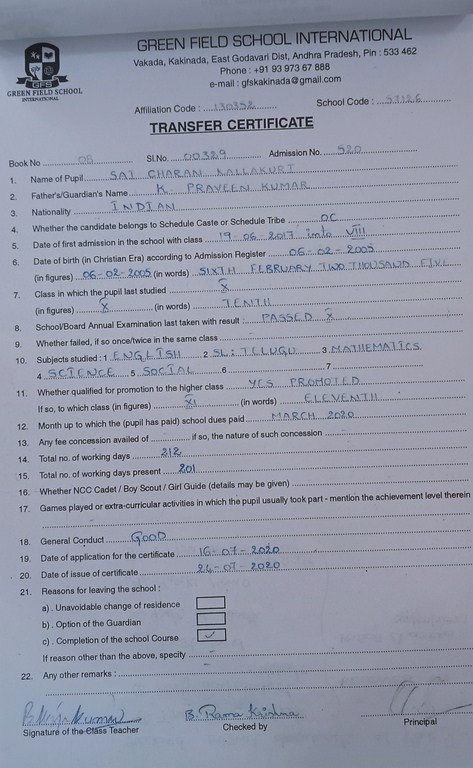 GREEN FIELD SCHOOL INTERNATIONAL
Vakada, Kakinada, East Godavari Dist, Andhra Pradesh, Pin : 533 462
Phone : +91 93 973 67 888
e-mail : gfskakinada@gmail.com
GFS
GREEN FIELD SCHOOL
INTERNATIONAL
Affiliation Code : 130352 School Code : 57126
TRANSFER CERTIFICATE
Book No 08 Sl.No. 00329 Admission No. 520
1. Name of Pupil SAI CHARAN KALLAKURI
2. Father's/Guardian's Name K. PRAVEEN KUMAR
3. Nationality INDIAN
4. Whether the candidate belongs to Schedule Caste or Schedule Tribe OC
5. Date of first admission in the school with class 19-06-2017 into VIII
6. Date of birth (in Christian Era) according to Admission Register 06-02-2005
(in figures) 06-02-2005 (in words) SIXTH FEBRUARY TWO THOUSAND FIVE
7. Class in which the pupil last studied X
(in figures) X (in words) TENTH
8. School/Board Annual Examination last taken with result : PASSED X
9. Whether failed, if so once/twice in the same class
10. Subjects studied : 1 ENGLISH 2 SL: TELUGU 3 MATHEMATICS
4 SCIENCE 5 SOCIAL 6 7
11. Whether qualified for promotion to the higher class YES PROMOTED
If so, to which class (in figures) XI (in words) ELEVENTH
12. Month up to which the (pupil has paid) school dues paid MARCH 2020
13. Any fee concession availed of if so, the nature of such concession
14. Total no. of working days 212
15. Total no. of working days present 201
16. Whether NCC Cadet / Boy Scout / Girl Guide (details may be given)
17. Games played or extra-curricular activities in which the pupil usually took part - mention the achievement level therein
18. General Conduct GOOD
19. Date of application for the certificate 16-07-2020
20. Date of issue of certificate 24-07-2020
21. Reasons for leaving the school :
a) . Unavoidable change of residence
b) . Option of the Guardian
c) . Completion of the school Course ✓
If reason other than the above, specify
22. Any other remarks :
B. Rama Krishna
Signature of the Class Teacher Checked by Principal